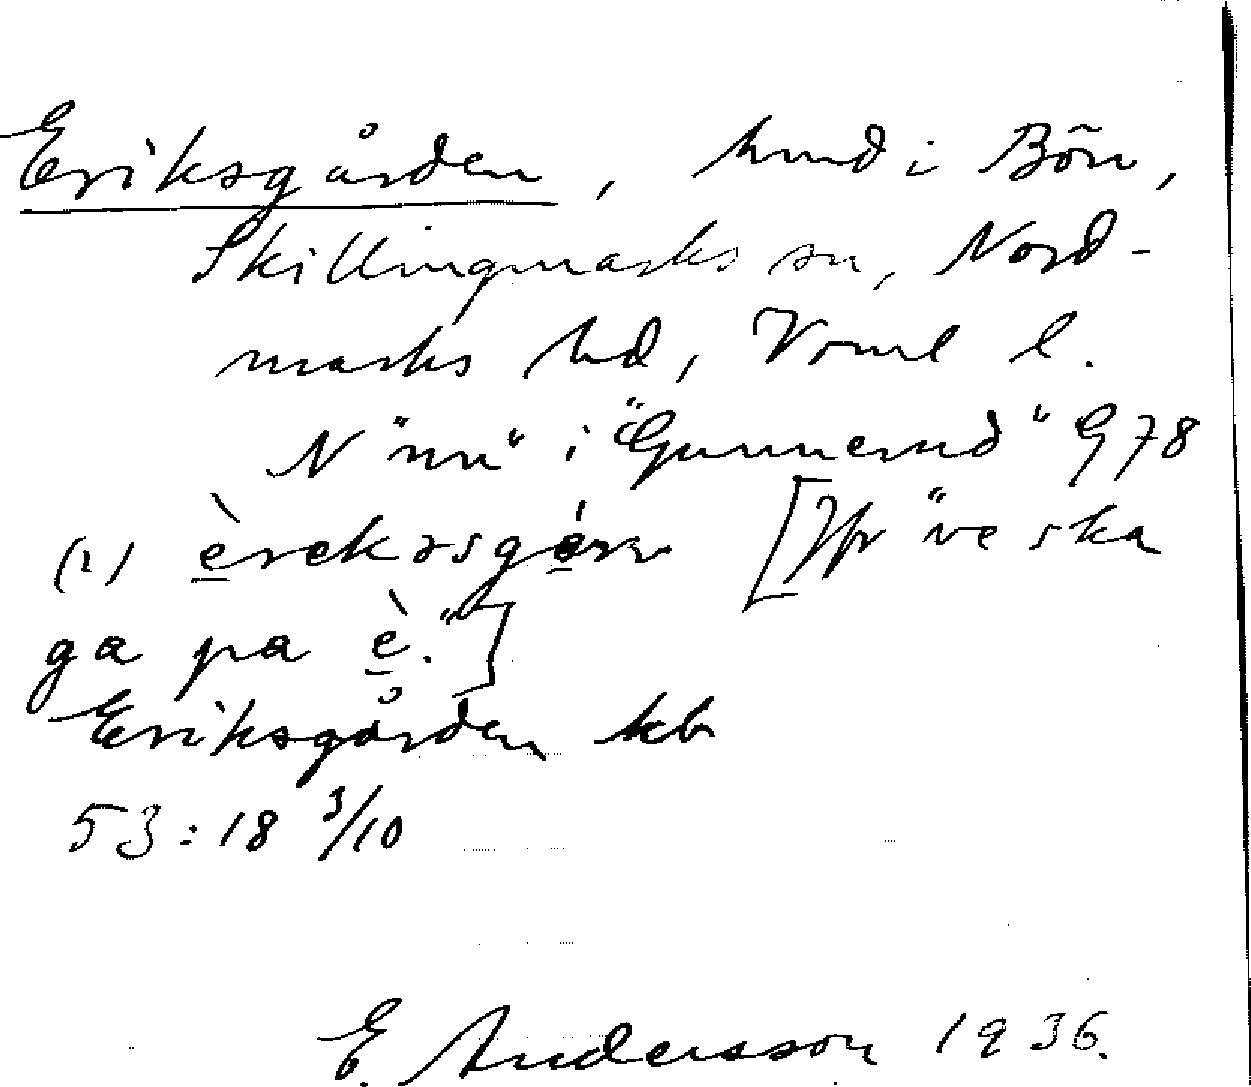 Eriksgården, hmd i Bön,
Skillingmarks sn, Nord-
marks hd, Vrml l.
N "nn" i "Gunnerud" G 78
(1) è̱rekəsgá̱rn [Jfr "ve ska
ga pa è̱."]
Eriksgården kb
53:18 3/10
E. Andersson 1936.